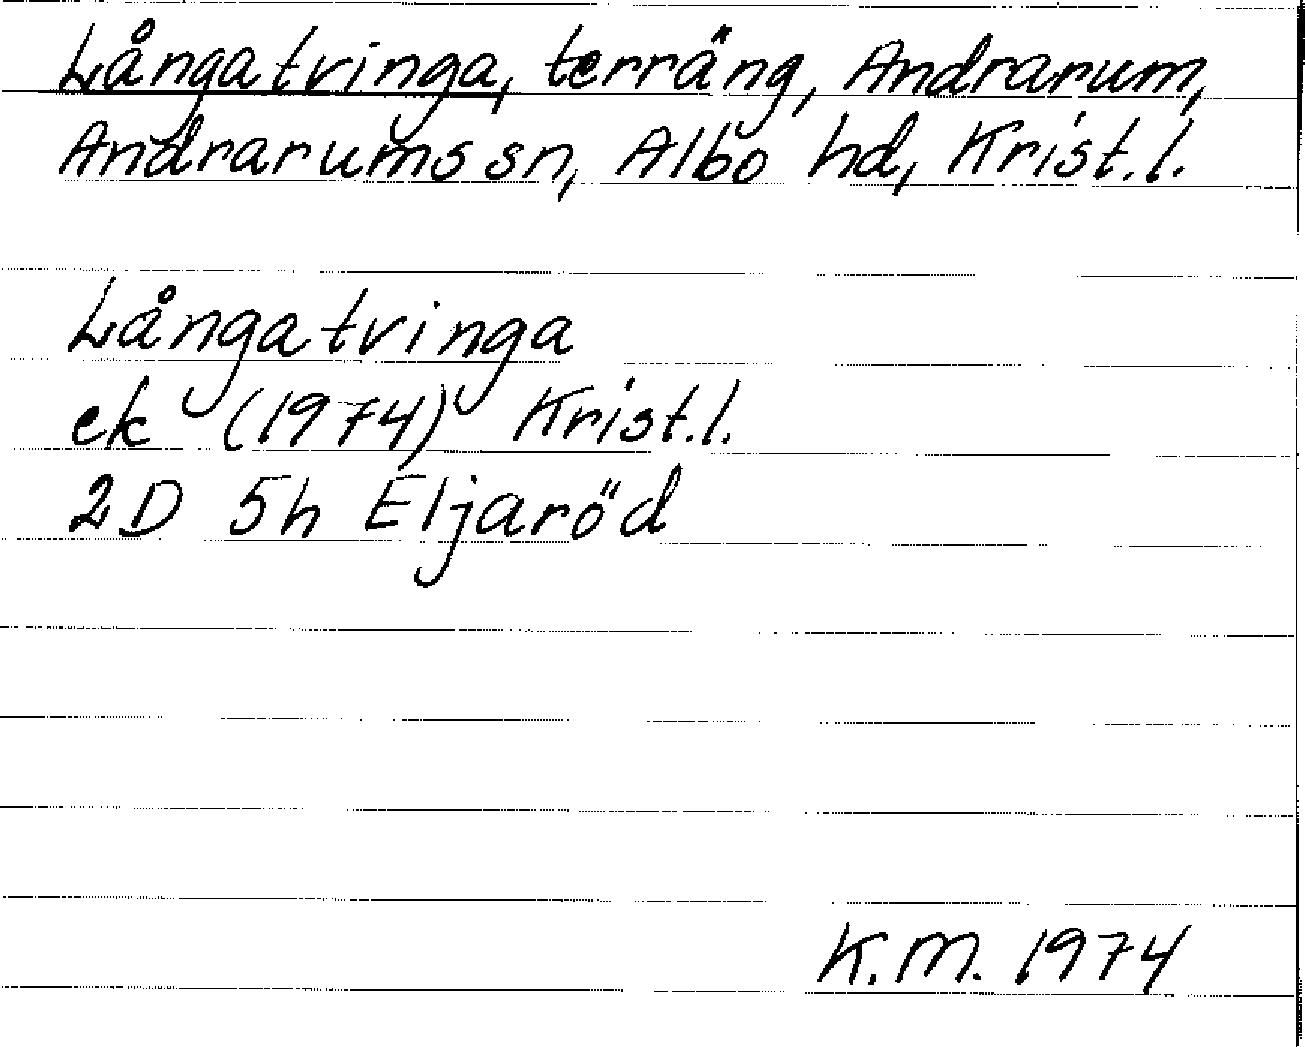 Långatvinga, terräng, Andrarum,
Andrarums sn, Albo hd, Krist.l.
Långatvinga
ek (1974) Krist.l.
2D 5h Eljaröd
K.M. 1974